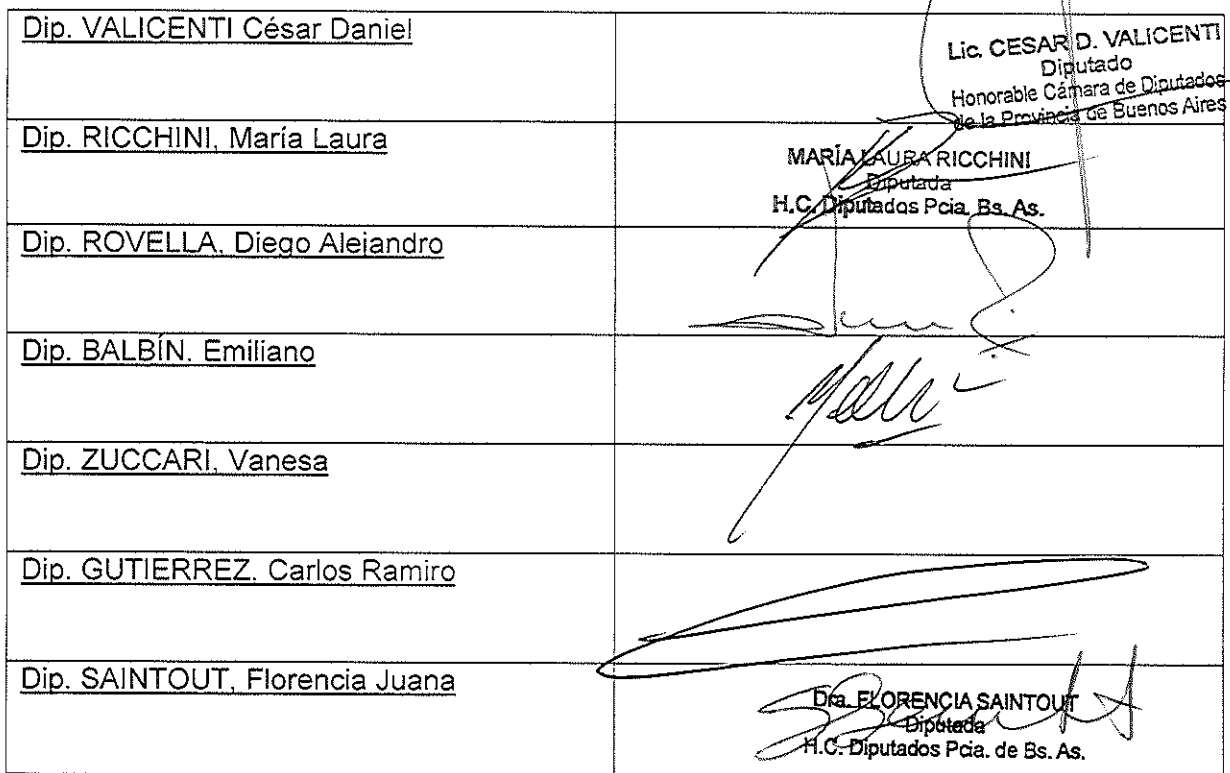 Dip. VALICENTI César Daniel
Lic. CESAR D. VALICENTI
Diputado
Honorable Cámara de Diputados
de la Provincia de Buenos Aires
Dip. RICCHINI, María Laura
MARÍA LAURA RICCHINI
Diputada
H.C. Diputados Pcia. Bs. As.
Dip. ROVELLA, Diego Alejandro
Dip. BALBÍN, Emiliano
Dip. ZUCCARI, Vanesa
Dip. GUTIERREZ, Carlos Ramiro
Dip. SAINTOUT, Florencia Juana
Dra. FLORENCIA SAINTOUT
Diputada
H.C. Diputados Pcia. de Bs. As.